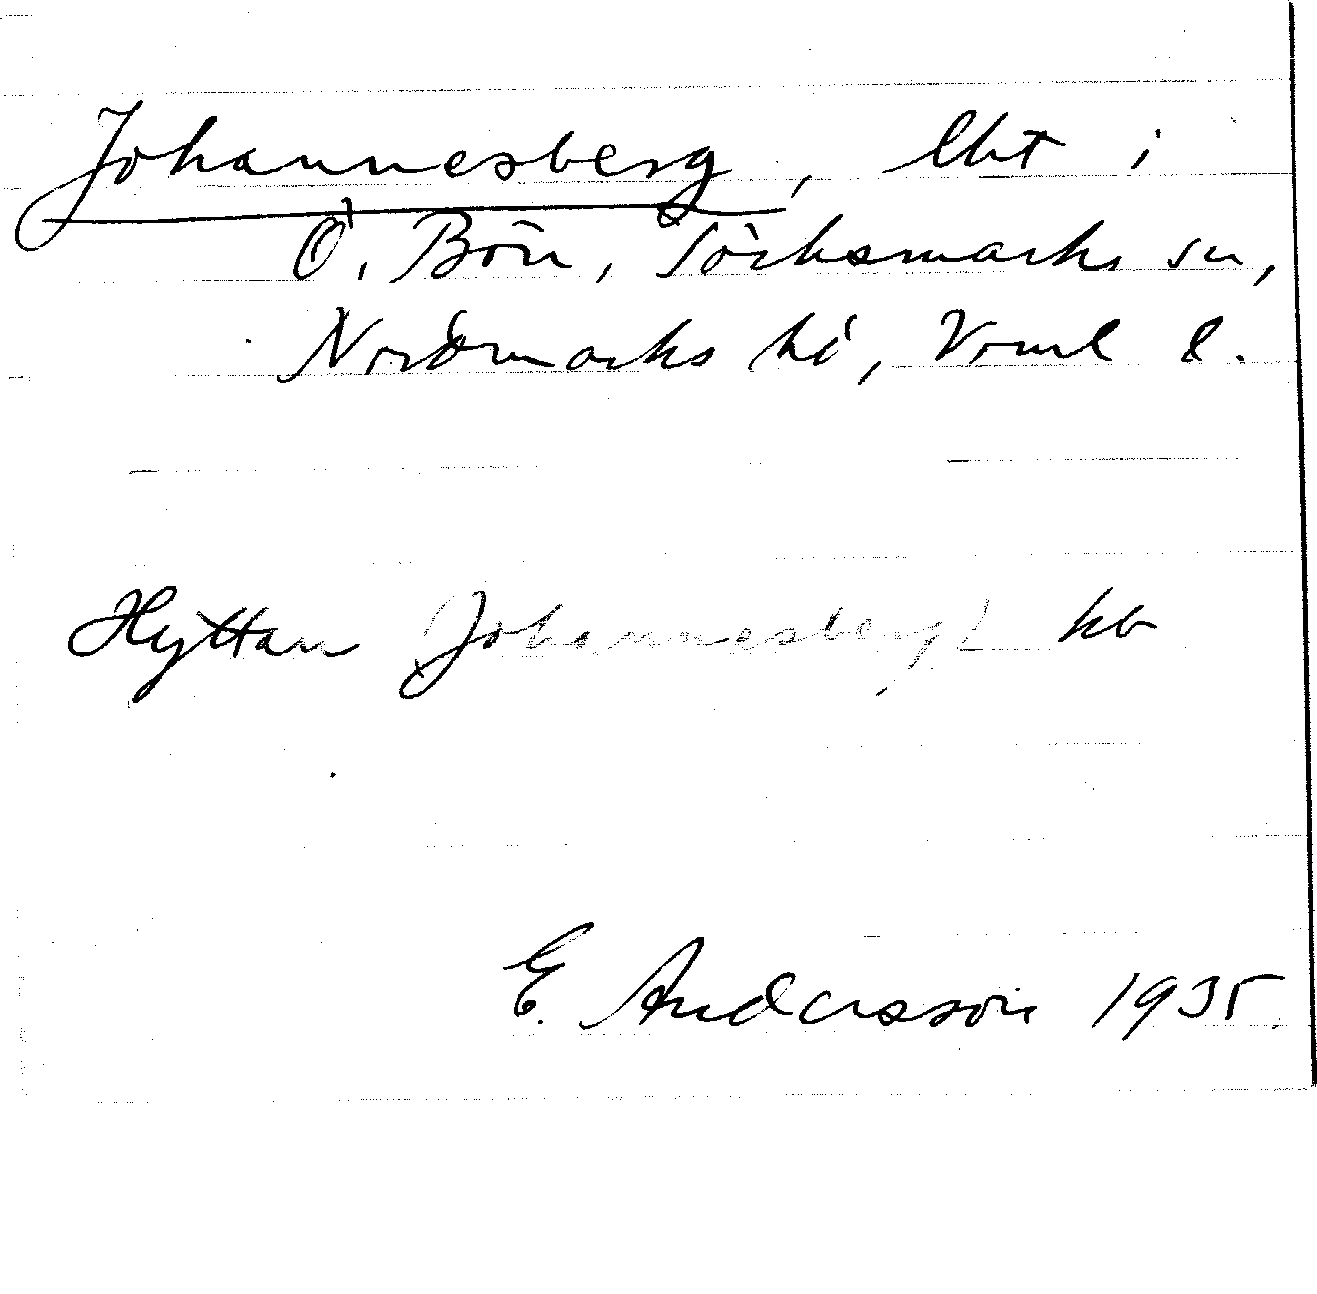 Johannesberg, lht i
Ö. Bön, Töcksmarks sn,
Nordmarks hd, Vrml l.
Hyttan (Johannesberg) kb
E. Andersson 1935